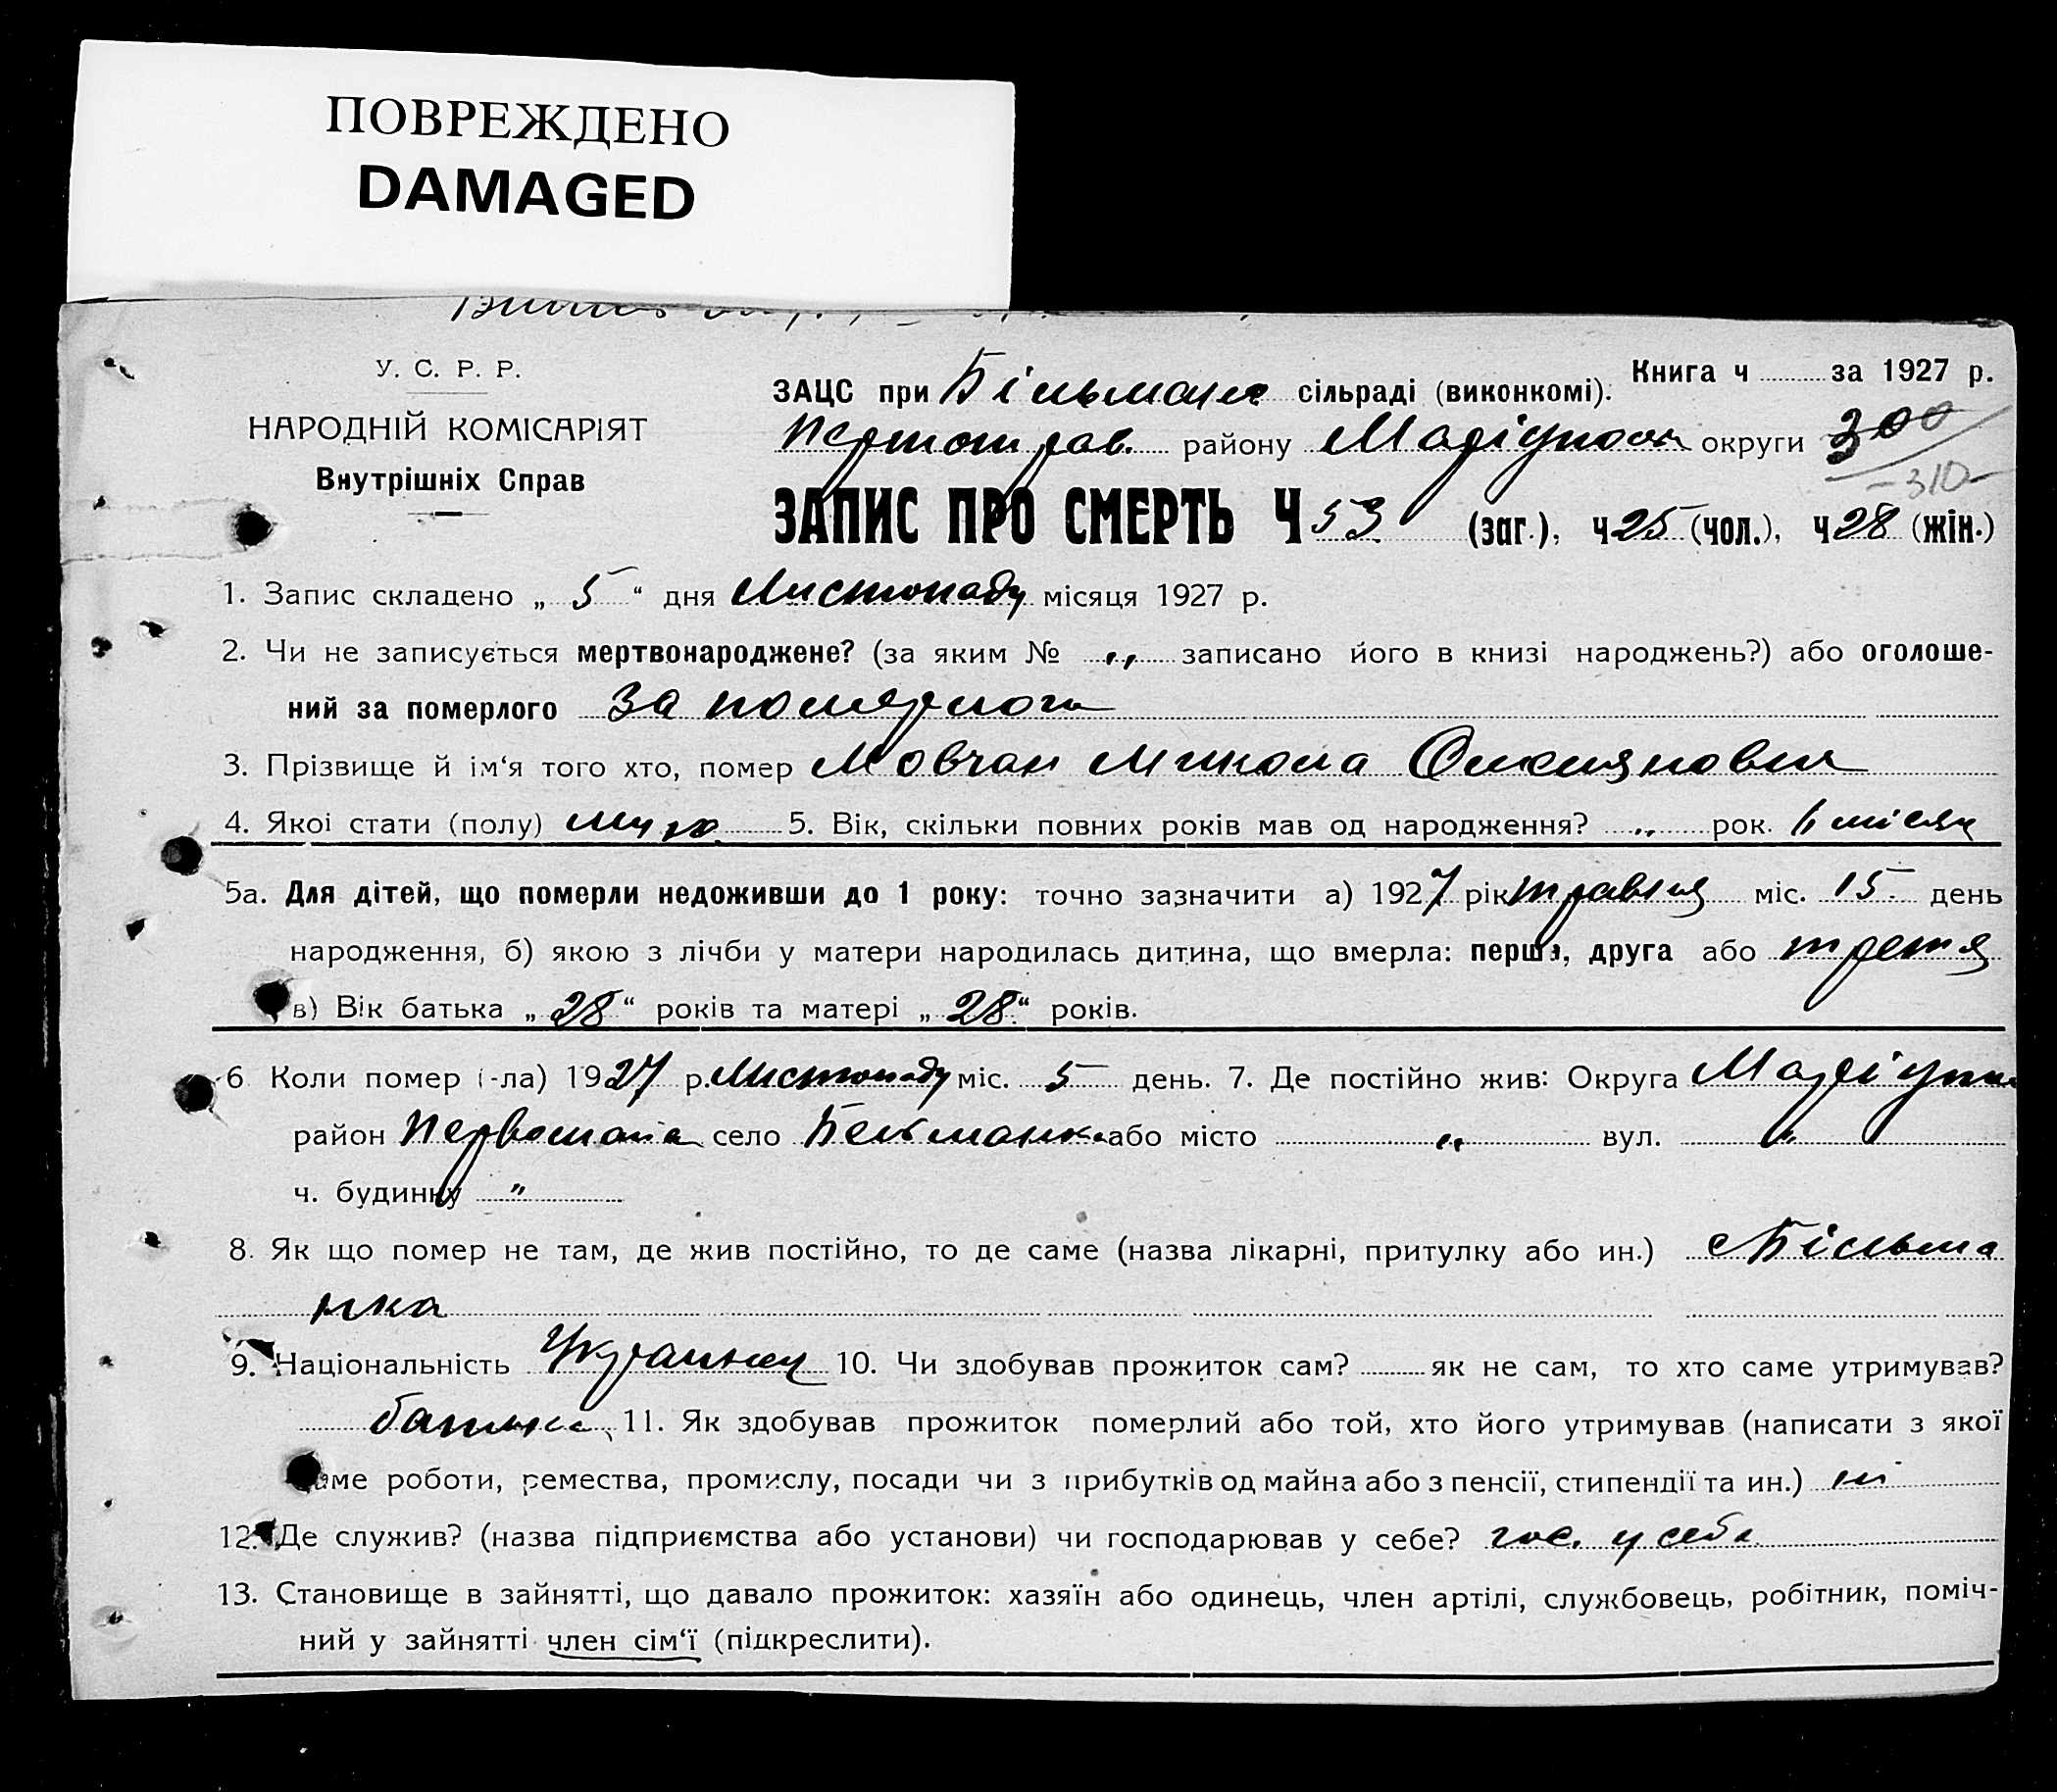 ПОВРЕЖДЕНО
DAMAGED
У. С. Р. Р.
НАРОДНІЙ КОМІСАРІЯТ
Внутрішніх Справ
Книга ч за 1927 р.
ЗАЦС при сільраді (виконкомі).
району Маріупол округи 300
-310-
ЗАПИС ПРО СМЕРТЬ Ч 53 (заг.), ч 25 (чол.), ч 28 (жін.)
1. Запис складено „ 5 “ дня Листопаду місяця 1927 р.
2. Чи не записується мертвонароджене? (за яким № „ записано його в книзі народжень?) або оголоше-
ний за померлого За померлого
3. Прізвище й ім‘я того хто, помер Мовчан Микола
4. Якоі стати (полу) муж 5. Вік, скільки повних років мав од народження? „ рок. 6 місяц
5а. Для дітей, що померли недоживши до 1 року: точно зазначити а) 1927 рік травня міс. 15 день
народження, б) якою з лічби у матери народилась дитина, що вмерла: перша, друга або третя
в) Вік батька „ 28 “ років та матері „ 28 “ років.
6 Коли помер (-ла) 1927 р. Листопаду міс. 5 день. 7. Де постійно жив: Округа Маріупол
район Первомайа село Бельманка або місто „ вул. „
ч. будинку „
8. Як що помер не там, де жив постійно, то де саме (назва лікарні, притулку або ин.) с Більма
нка
9. Національність Украинец 10. Чи здобував прожиток сам? як не сам, то хто саме утримував?
батько 11. Як здобував прожиток померлий або той, хто його утримував (написати з якої
саме роботи, ремества, промислу, посади чи з прибутків од майна або з пенсії, стипендії та ин.) ні
12. Де служив? (назва підприємства або установи) чи господарював у себе? гос. у себе
13. Становище в зайнятті, що давало прожиток: хазяїн або одинець, член артілі, службовець, робітник, поміч-
ний у зайнятті член сім‘ї (підкреслити).